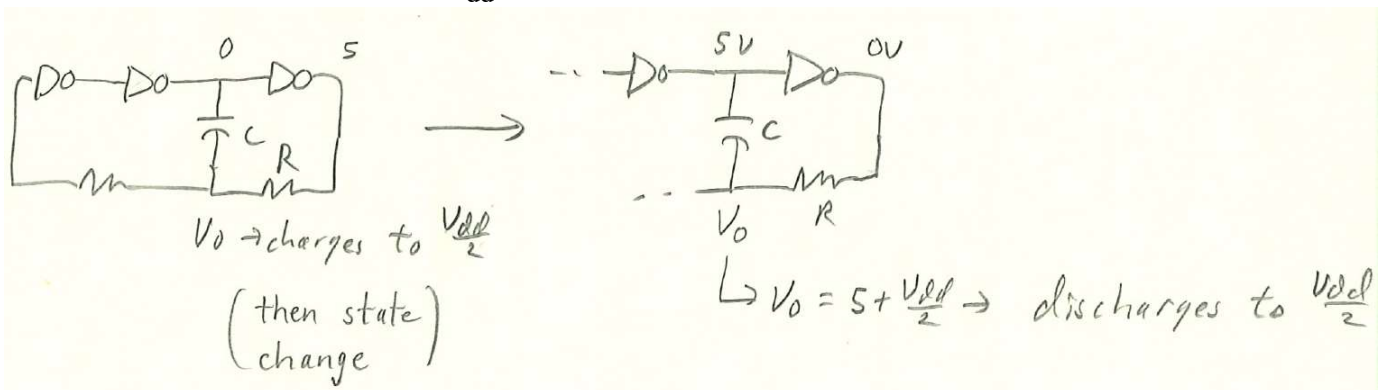 dd
0 5
C
R
V0 → charges to Vdd/2
(then state change)
5V 0V
C
R
V0
↳ V0 = 5 + Vdd/2 → discharges to Vdd/2